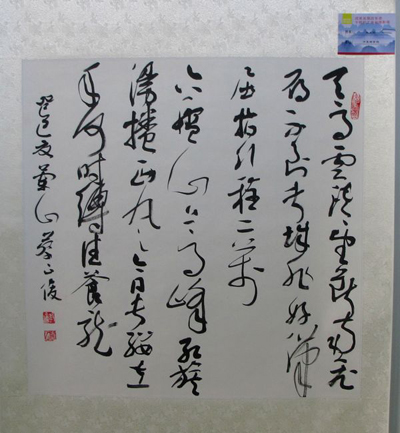 天高雲淡望斷南飛
雁不到長城非好漢
屈指行程二萬
六盤山上高峰紅旗
漫捲西風今日長纓在
手何時縛住蒼龍
癸巳夏 山 蔡正俊